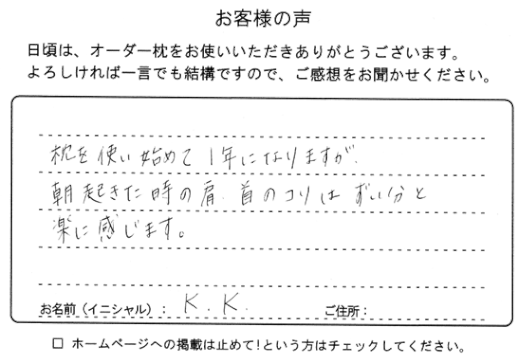 お客様の声
日頃は、オーダー枕をお使いいただきありがとうございます。
よろしければ一言でも結構ですので、ご感想をお聞かせください。
枕を使い始めて1年になりますが、
朝起きた時の肩、首のコリはずい分と
楽に感じます。
お名前（イニシャル）： K.K. ご住所：
□ ホームページへの掲載は止めて！という方はチェックしてください。